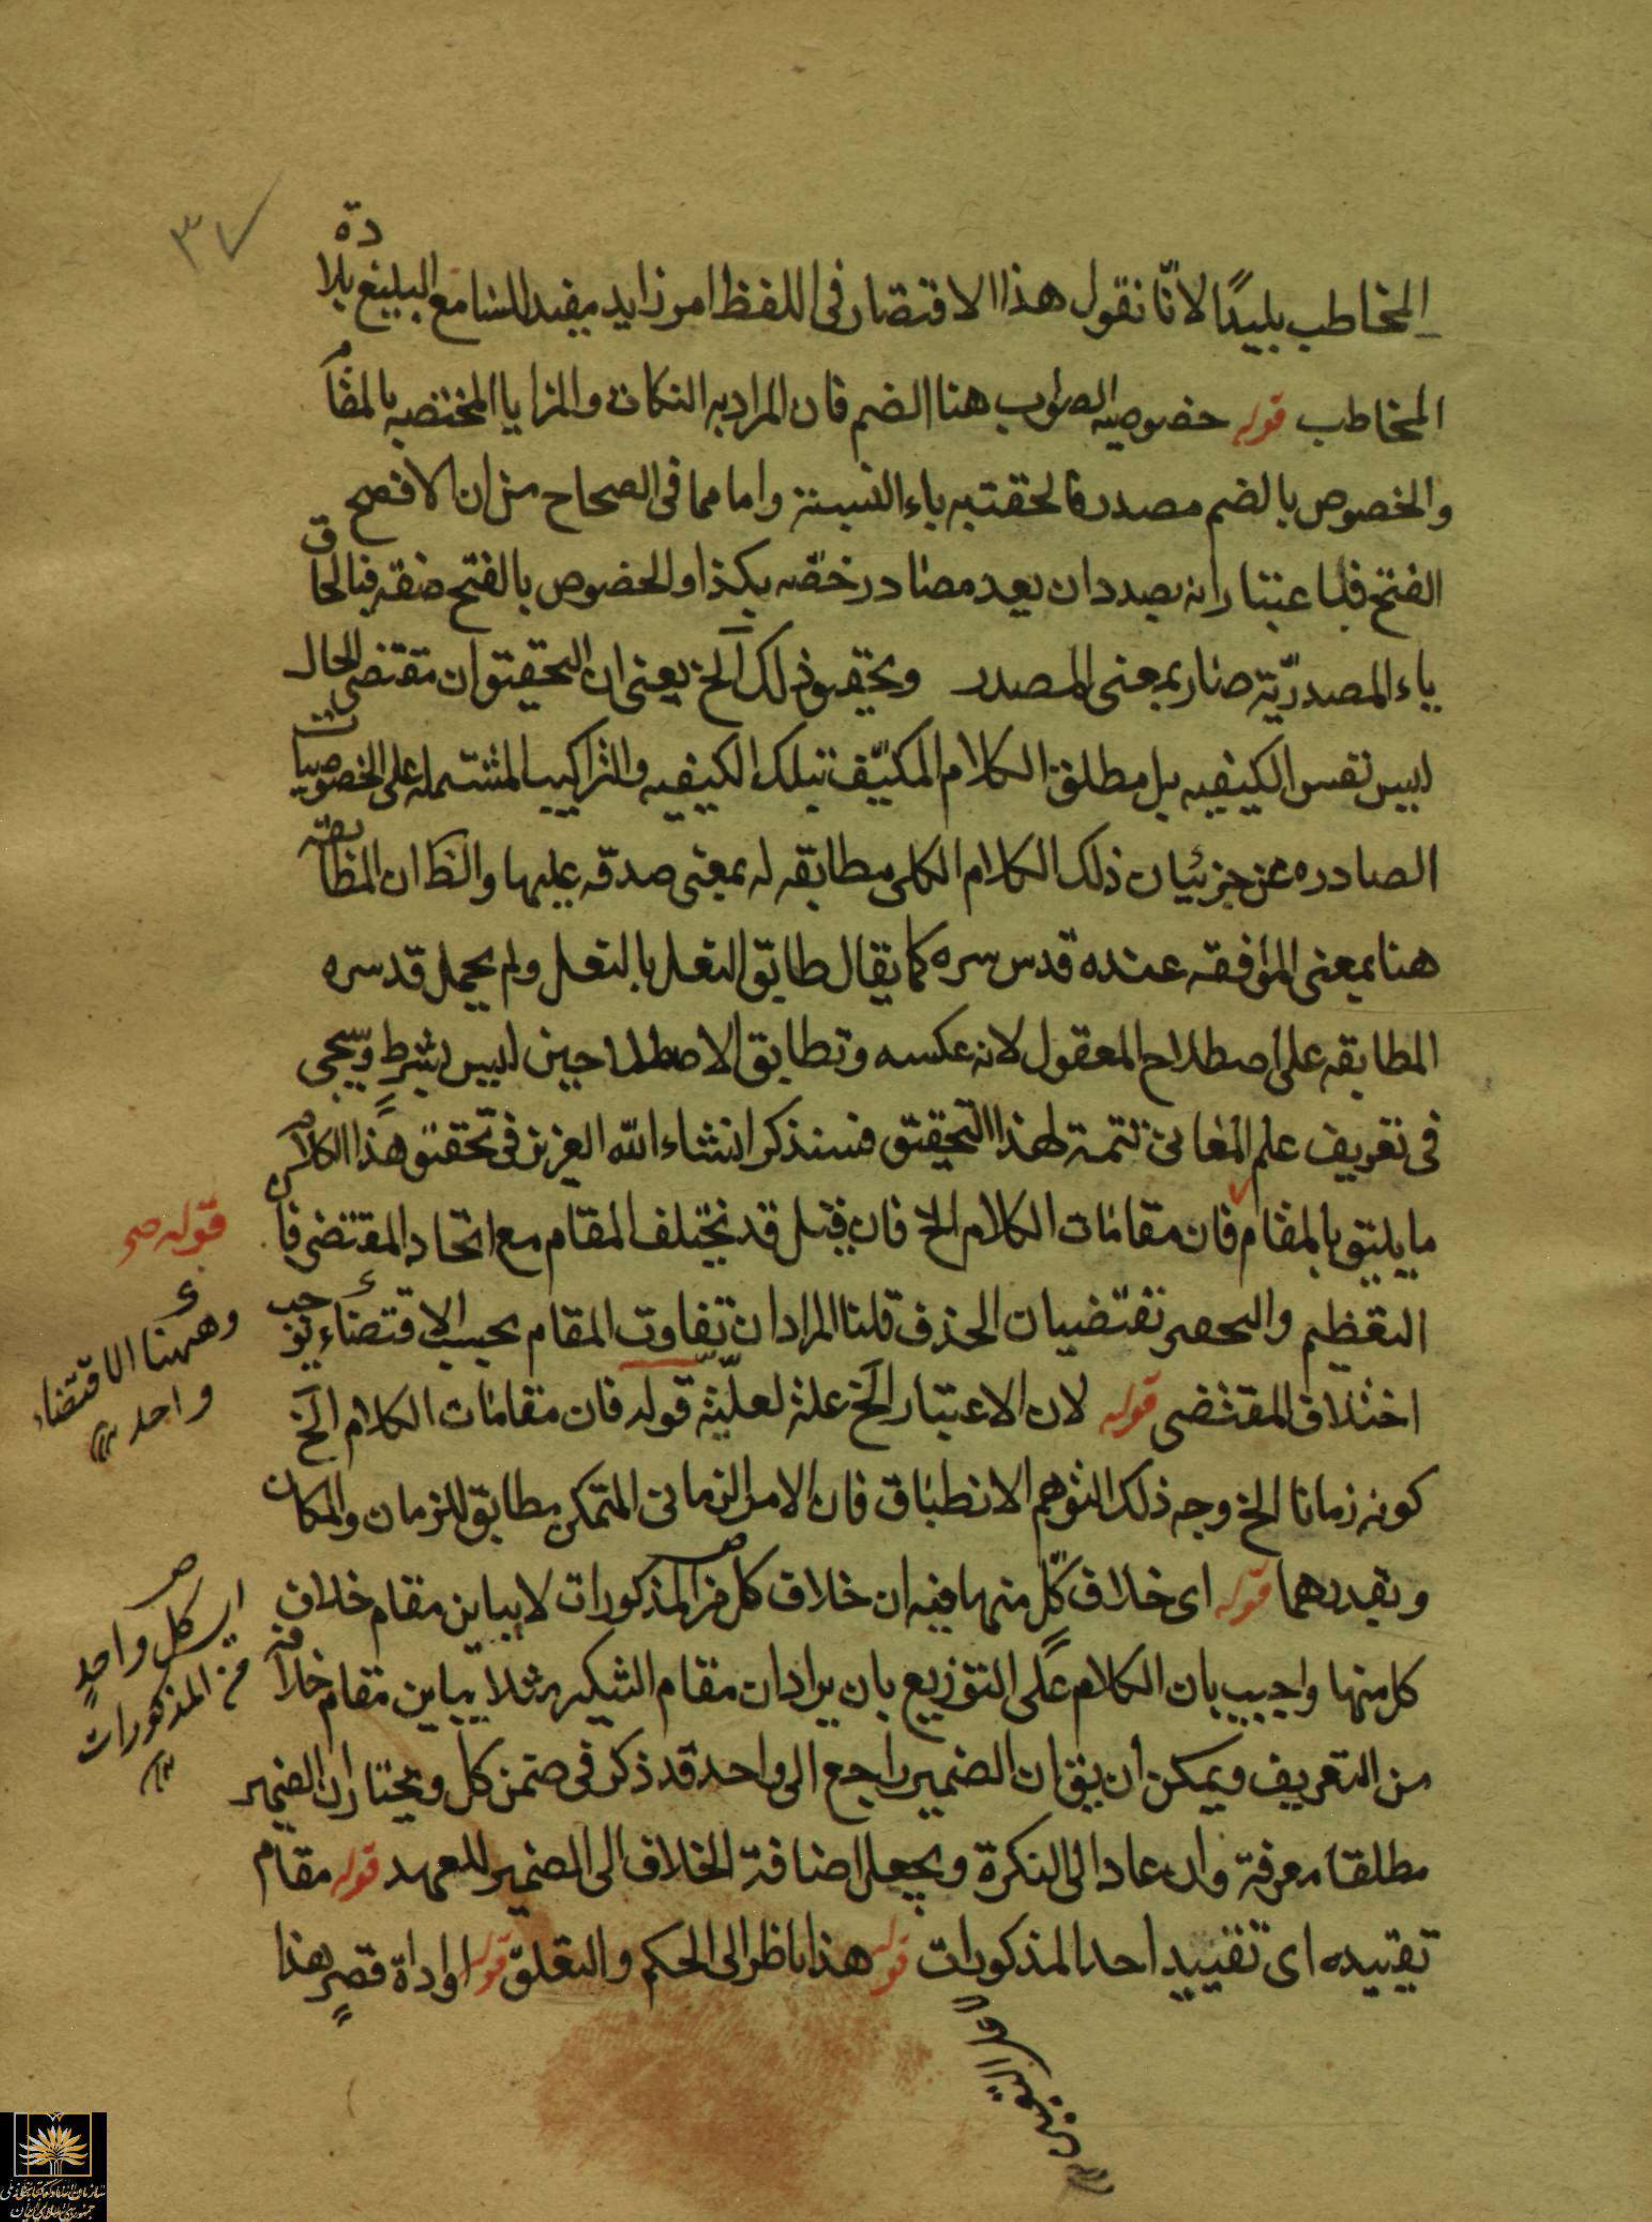 ٣٧
المخاطب بليدًا لانّا نقول هذا الاقتصار فى اللفظ امر زايد يفيد للسامع البليغ بلادة
المخاطب قوله خصوصيه الصواب هنا الضم فان المراد به النكات والمزايا المختصه بالمقام
والخصوص بالضم مصدر فالحقت به ياء النسبة واما مما فى الصحاح من ان الافصح
الفتح فباعتبار انه بصدد ان يعد مصادر خصّه بكذا والخصوص بالفتح صفة فبالحاق
ياء المصدريّة صار بمعنى المصدر وتحقيق ذلك الخ يعنى ان التحقيق ان مقتضى الحال
ليس نفس الكيفيه بل مطلق الكلام المكيّف بتلك الكيفيه والتراكيب المشتمله على الخصوصيات
الصادره عن جزئيات ذلك الكلام الكلى مطابقه له بمعنى صدقه عليها والظ ان المطابقه
هنا بمعنى الموافقه عنده قدس سره كما يقال طابق النعل بالنعل ولم يحمل قدسره
المطابقه على اصطلاح المعقول لانه عكسه وتطابق الاصطلاحين ليس بشرط وسيجى
فى تعريف علم المعانى تتمة لهذا التحقيق فسنذكر انشاء الله العزيز فى تحقيق هذا الكلام
ما يليق بالمقام فان مقامات الكلام الخ فان قيل قد يختلف المقام مع اتحاد المقتضى فان
التعظيم والحصر تقتضيان الحذف قلنا المراد ان تفاوت المقام بحسب الاقتضاء يوجب
اختلاف المقتضى قوله لان الاعتبار الخ علة لعلّيّة قوله فان مقامات الكلام الخ
كونه زمانا الخ وجه ذلك التوهم الانطباق فان الامر الزمانى المتمكن مطابق للزمان والمكان
وبقدرهما قوله اى خلاف كلّ منها فيه ان خلاف كل من المذكورات لا يباين مقام خلاف
كل منها واجيب بان الكلام على التوزيع بان يراد ان مقام التنكير مثلا يباين مقام خلافه
من التعريف ويمكن ان يق ان الضمير راجع الى واحد قد ذكر فى ضمن كل ويختار ان الضمير
مطلقا معرفة وان عاد الى النكرة ويجعل اضافة الخلاف الى الضمير للعهد قوله مقام
تقييده اى تقييد احد المذكورات قوله هذا ناظر الى الحكم والتعلق قوله او اداة قصر هذا
قوله صح
وههنا الاقتضاء
واحد
اى كل واحد
من المذكورات